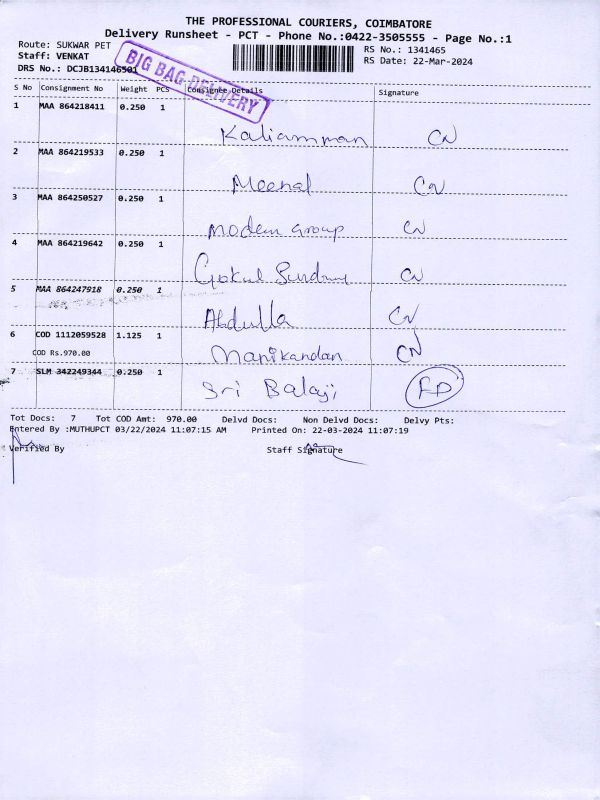 THE PROFESSIONAL COURIERS, COIMBATORE
Delivery Runsheet - PCT - Phone No.:0422-3505555 - Page No.:1
Route: SUKWAR PET
RS No.: 1341465
Staff: VENKAT
RS Date: 22-Mar-2024
DRS No.: DCJB134146501
BIG BAG DELIVERY
S No Consignment No Weight PCS Consignee Details Signature
1 MAA 864218411 0.250 1
Kaliamman CN
2 MAA 864219533 0.250 1
Meenal CN
3 MAA 864250527 0.250 1
modern Group CN
4 MAA 864219642 0.250 1
Gokul CN
5 MAA 864247918 0.250 1
Abdulla CN
6 COD 1112059528 1.125 1
COD Rs.970.00
Manikandan CN
7 SLM 342249344 0.250 1
Sri Balaji
Tot Docs: 7 Tot COD Amt: 970.00 Delvd Docs: Non Delvd Docs: Delvy Pts:
Entered By :MUTHUPCT 03/22/2024 11:07:15 AM Printed On: 22-03-2024 11:07:19
Verified By Staff Signature